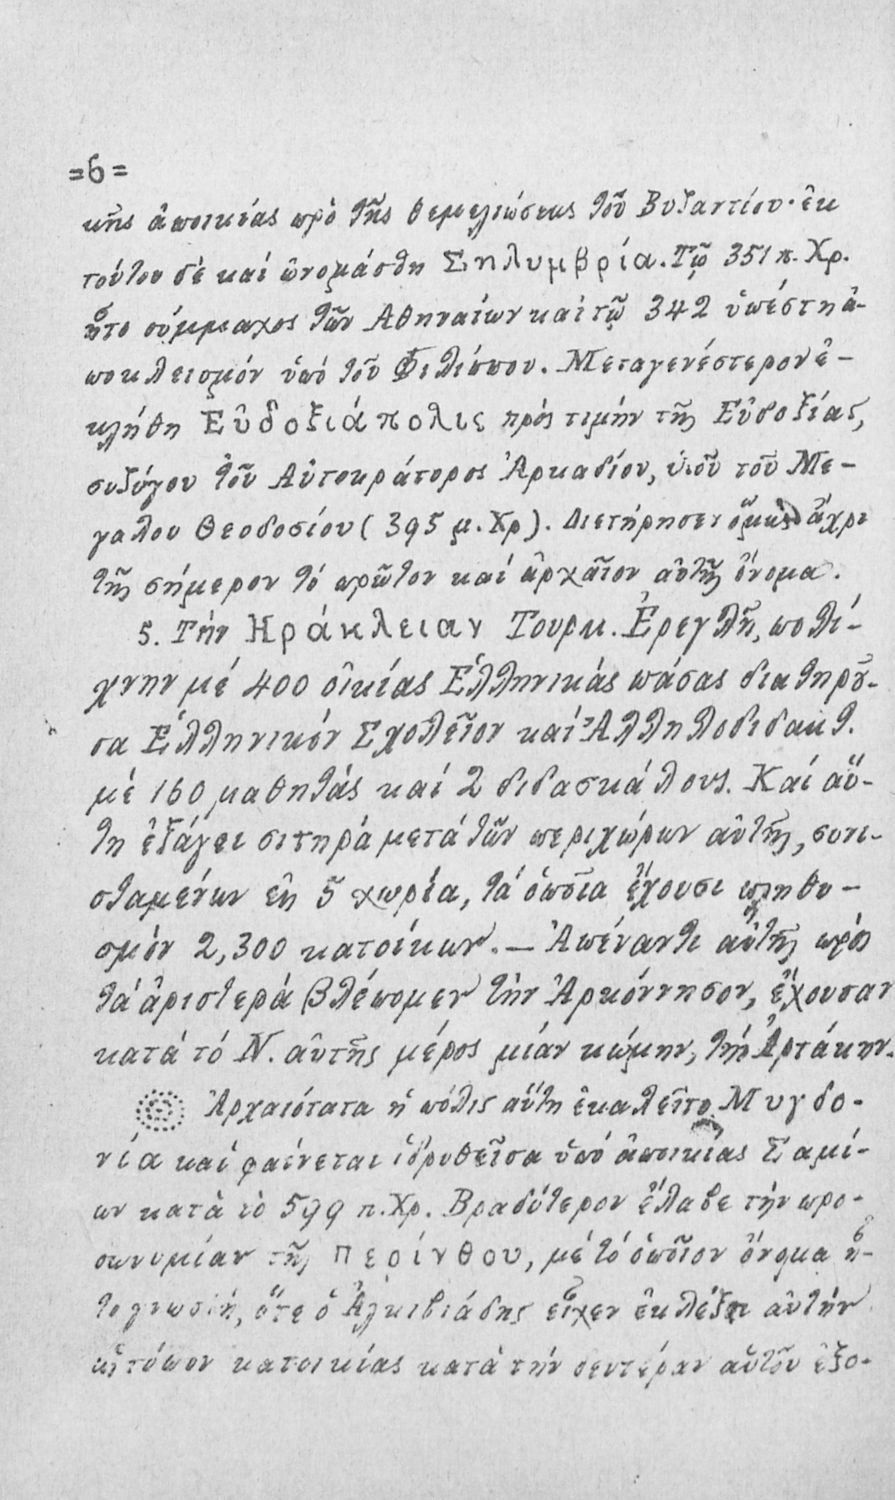 =6=
κῆς ἀποικίας πρὸ τῆς θεμελιώσεως τοῦ Βυζαντίου· ἐκ
τούτου δὲ καὶ ὠνομάσθη Σηλυμβρία. Τῷ 351 π. Χρ.
ἦτο σύμμαχος τῶν Ἀθηναίων καὶ τῷ 342 ὑπέστη ἀ-
ποκλεισμόν ὑπό τοῦ Φιλίππου. Μεταγενέστερον ἐ-
κλήθη Εὐδοξιάπολις πρός τιμήν τῆς Εὐδοξίας,
συζύγου τοῦ Αὐτοκράτορος Ἀρκαδίου, υἱοῦ τοῦ Με-
γαλου Θεοδοσίου (395 μ. Χρ). Διετήρησεν ὅμως ἄχρι
τῆς σήμερον τό πρῶτον καί ἀρχαῖον αὐτῆς ὄνομα.
5. Τήν Ηράκλειαν Τουρκ. Ἐρεγλῆ, πολί-
χνην μέ 400 οἰκίας Ἑλληνικάς πάσας διατηροῦ-
σα Ἑλληνικόν Σχολεῖον καί Ἀλληλοδιδακτ.
μέ 160 μαθητάς καί 2 διδασκάλους. Καί αὕ-
τη ἐξάγει σιτηρά μετά τῶν περιχώρων αὐτῆς, συνι-
σταμένων ἐκ 5 χωρία, τά ὁποῖα ἔχουσι πληθυ-
σμόν 2,300 κατοίκων. — Ἀπέναντι αὐτῆς πρός
τά ἀριστερά βλέπομεν τήν Ἀρκόννησον, ἔχουσαν
κατά τό Ν. αὐτῆς μέρος μίαν κώμην, τήν Ἀρτάκην.
Ἀρχαιότατα ἡ πόλις αὕτη ἐκαλεῖτο Μυγδο-
νία καί φαίνεται ἱδρυθεῖσα ὑπό ἀποικίας Σαμί-
ων κατά τό 599 π. Χρ. Βραδύτερον ἔλαβε τήν προ-
σωνυμίαν τῆς Περίνθου, μέ τό ὁποῖον ὄνομα ἦ-
το γνωστή, ὅτε ὁ Ἀλκιβιάδης εἶχεν ἐκλέξει αὐτήν
ὡς τόπον κατοικίας κατά τήν δευτέραν αὐτοῦ ἐξο-